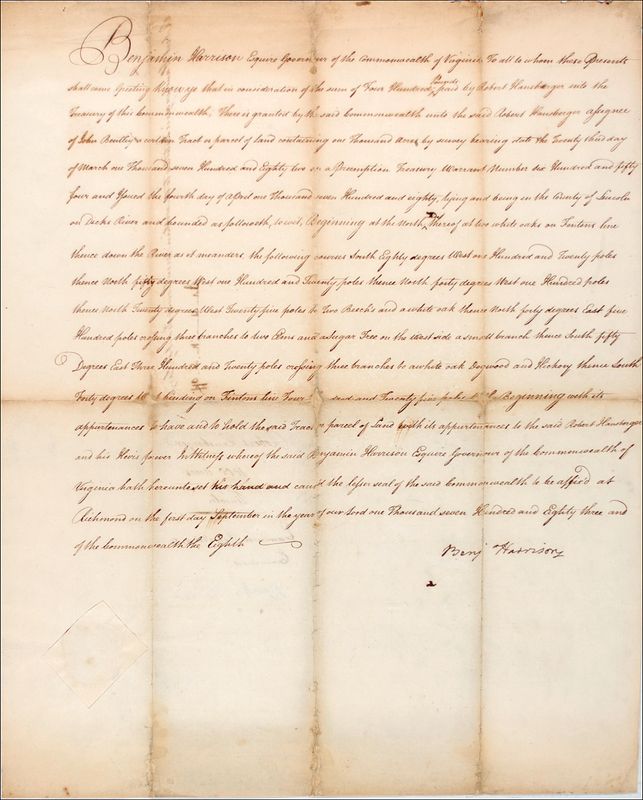 Benjamin Harrison Esquire Governor of the Commonwealth of Virginia To all to whom these Presents
shall come Greeting know ye that in consideration of the sum of Four Hundred Pounds paid by Robert Hansberger unto the
Treasury of this Commonwealth, There is granted by the said Commonwealth unto the said Robert Hansberger assignee
of John a certain Tract or parcel of land containing one Thousand Acres by survey bearing date the Twenty third day
of March one Thousand seven Hundred and Eighty two on a Preemption Treasury Warrant Number six Hundred and fifty
four and Issued the fourth day of April one Thousand seven Hundred and eighty, lying and being in the County of Lincoln
on Dicks River and bounded as followeth, to wit, Beginning at the North Thereof at two white oaks on Fentons line
thence down the River as it meanders the following courses South Eighty degrees West one Hundred and Twenty poles
thence North fifty degrees West one Hundred and Twenty poles thence North forty degrees West one Hundred poles
thence North Twenty degrees West Twenty five poles to Two Beech's and a white oak thence North forty degrees East five
Hundred poles crossing three branches to two Elms and a Sugar Tree on the West side a small branch thence South fifty
Degrees East Three Hundred and Twenty poles crossing three branches to a white oak Dogwood and Hickory thence South
Forty degrees binding on Fentons line Four and Twenty five poles Beginning with its
appurtenances To have and to hold the said Tract or parcel of Land with its appurtenances to the said Robert Hansberger
and his Heirs forever In Witness whereof the said Benjamin Harrison Esquire Governor of the Commonwealth of
Virginia hath hereunto set his hand and caused the lesser seal of the said Commonwealth to be affixed at
Richmond on the first day September in the year of our Lord one Thousand seven Hundred and Eighty three and
of the Commonwealth the Eighth
Benj Harrison